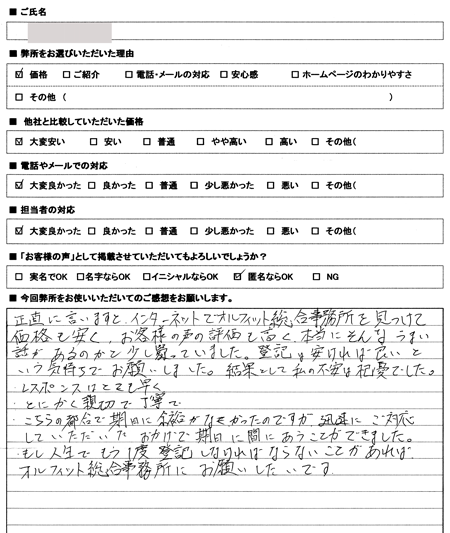 ■ ご氏名
■ 弊所をお選びいただいた理由
☑ 価格 □ ご紹介 □ 電話・メールの対応 □ 安心感 □ ホームページのわかりやすさ
□ その他 ( )
■ 他社と比較していただいた価格
☑ 大変安い □ 安い □ 普通 □ やや高い □ 高い □ その他(
■ 電話やメールでの対応
☑ 大変良かった □ 良かった □ 普通 □ 少し悪かった □ 悪い □ その他(
■ 担当者の対応
☑ 大変良かった □ 良かった □ 普通 □ 少し悪かった □ 悪い □ その他(
■ 「お客様の声」として掲載させていただいてもよろしいでしょうか?
□ 実名でOK □ 名字ならOK □ イニシャルならOK ☑ 匿名ならOK □ NG
■ 今回弊所をお使いいただいてのご感想をお願いします。
正直に言いますと、インターネットでオルフィット総合事務所を見つけて
価格も安く、お客様の声の評価も高く、本当にそんなうまい
話があるのかと少し疑っていました。登記は安ければ良いと
いう気持ちでお願いしました。結果として私の不安は杞憂でした。
・レスポンスはとても早く
・とにかく親切で丁寧で
・こちらの都合で期日に余裕がなかったのですが、迅速にご対応
していただいたおかげで期日に間にあうことができました。
・もし人生でもう1度登記しなければならないことがあれば、
オルフィット総合事務所にお願いしたいです